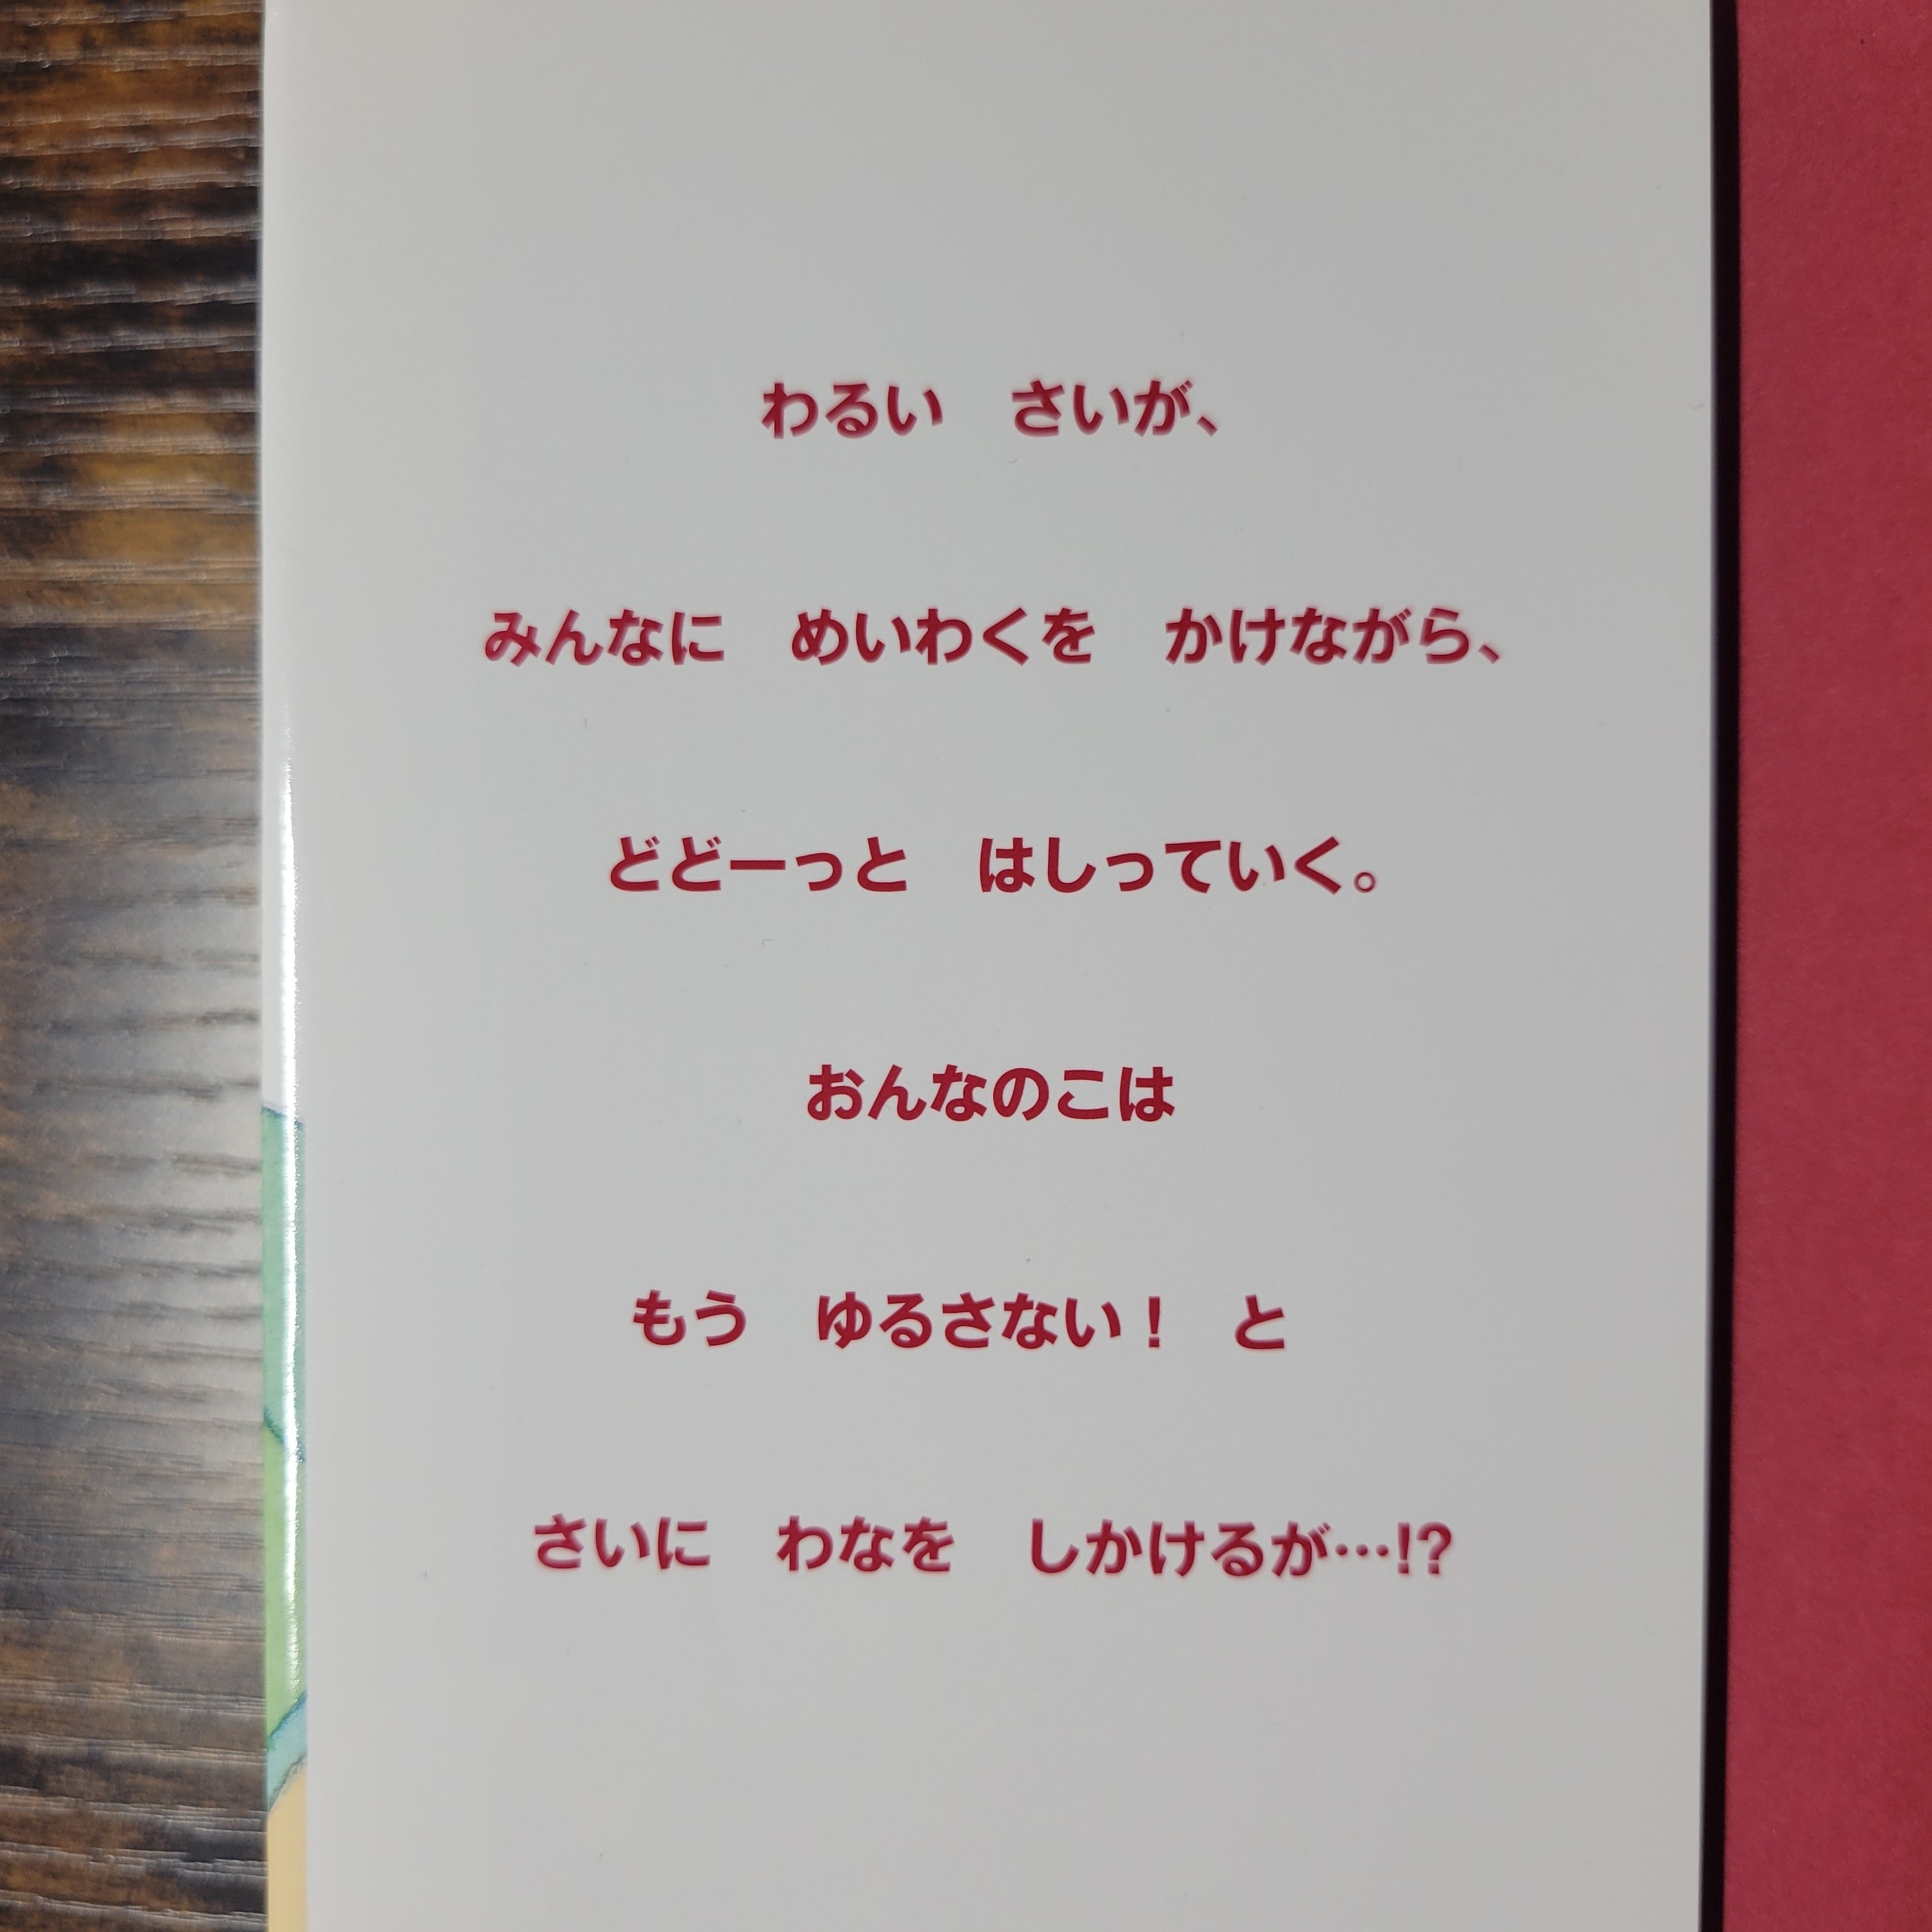 わるい　さいが、
みんなに　めいわくを　かけながら、
どどーっと　はしっていく。
おんなのこは
もう　ゆるさない！　と
さいに　わなを　しかけるが…!?